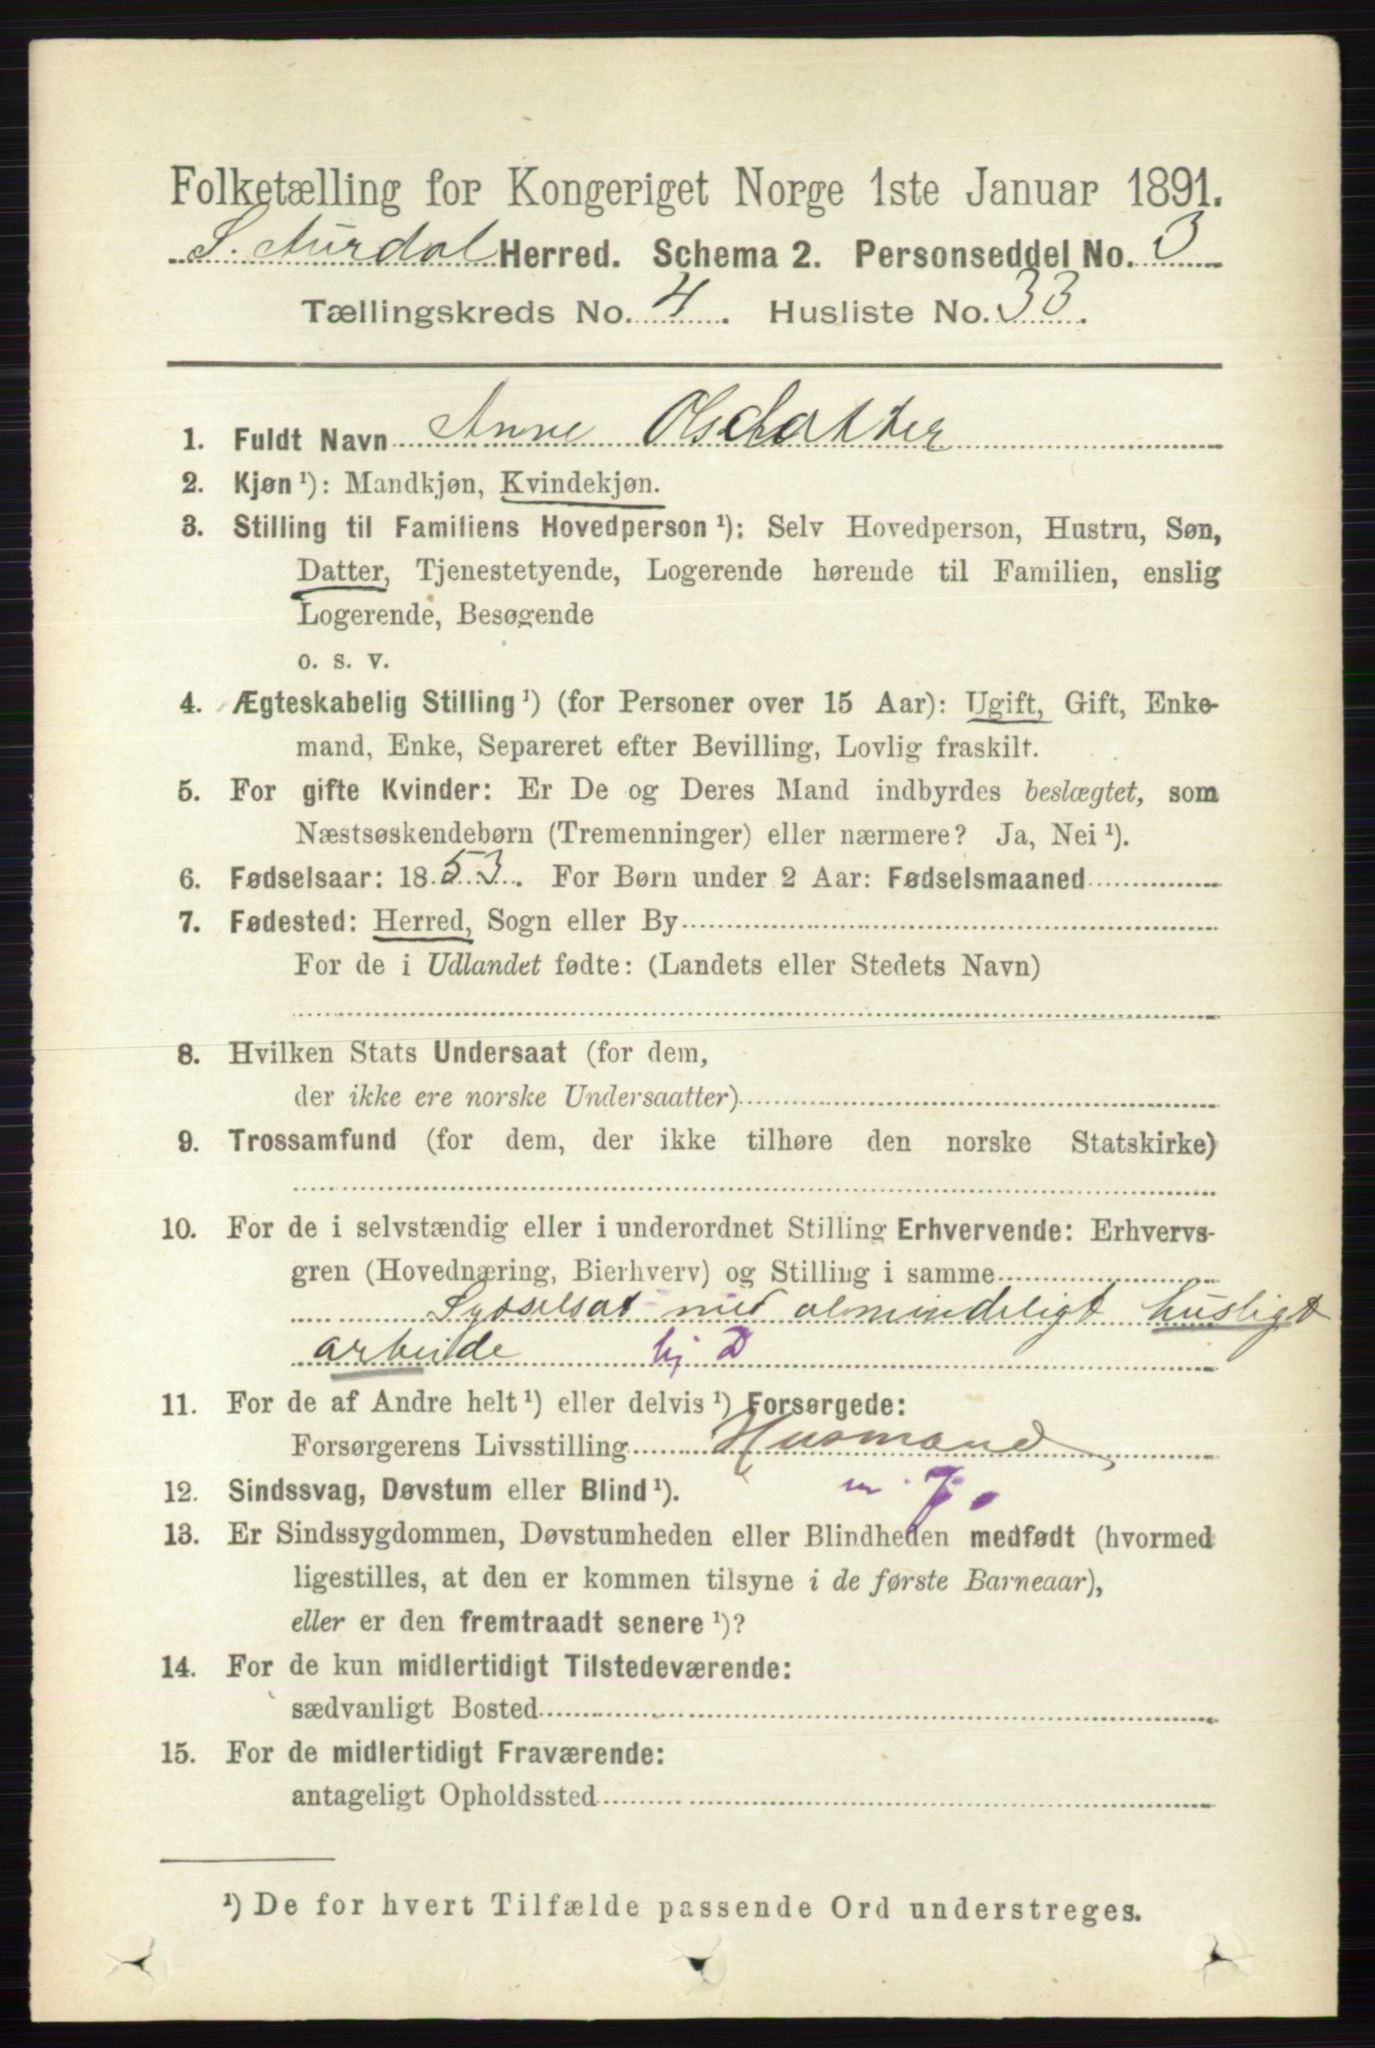 Folketælling for Kongeriget Norge 1ste Januar 1891.
S. Aurdal Herred. Schema 2. Personseddel No. 3
Tællingskreds No. 4. Husliste No. 33.
1. Fuldt Navn Anne Olsdatter
2. Kjøn ¹): Mandkjøn, Kvindekjøn.
3. Stilling til Familiens Hovedperson ¹): Selv Hovedperson, Hustru, Søn,
Datter, Tjenestetyende, Logerende hørende til Familien, enslig
Logerende, Besøgende
o. s. v.
4. Ægteskabelig Stilling ¹) (for Personer over 15 Aar): Ugift, Gift, Enke-
mand, Enke, Separeret efter Bevilling, Lovlig fraskilt.
5. For gifte Kvinder: Er De og Deres Mand indbyrdes beslægtet, som
Næstsøskendebørn (Tremenninger) eller nærmere? Ja, Nei ¹).
6. Fødselsaar: 1853. For Børn under 2 Aar: Fødselsmaaned
7. Fødested: Herred, Sogn eller By
For de i Udlandet fødte: (Landets eller Stedets Navn)
8. Hvilken Stats Undersaat (for dem,
der ikke ere norske Undersaatter)
9. Trossamfund (for dem, der ikke tilhøre den norske Statskirke)
10. For de i selvstændig eller i underordnet Stilling Erhvervende: Erhvervs-
gren (Hovednæring, Bierhverv) og Stilling i samme
Sysselsat med almindeligt husligt
arbeide hj D
11. For de af Andre helt ¹) eller delvis ¹) Forsørgede:
Forsørgerens Livsstilling Husmand
12. Sindssvag, Døvstum eller Blind ¹). m. J.
13. Er Sindssygdommen, Døvstumheden eller Blindheden medfødt (hvormed
ligestilles, at den er kommen tilsyne i de første Barneaar),
eller er den fremtraadt senere ¹)?
14. For de kun midlertidigt Tilstedeværende:
sædvanligt Bosted
15. For de midlertidigt Fraværende:
antageligt Opholdssted
¹) De for hvert Tilfælde passende Ord understreges.